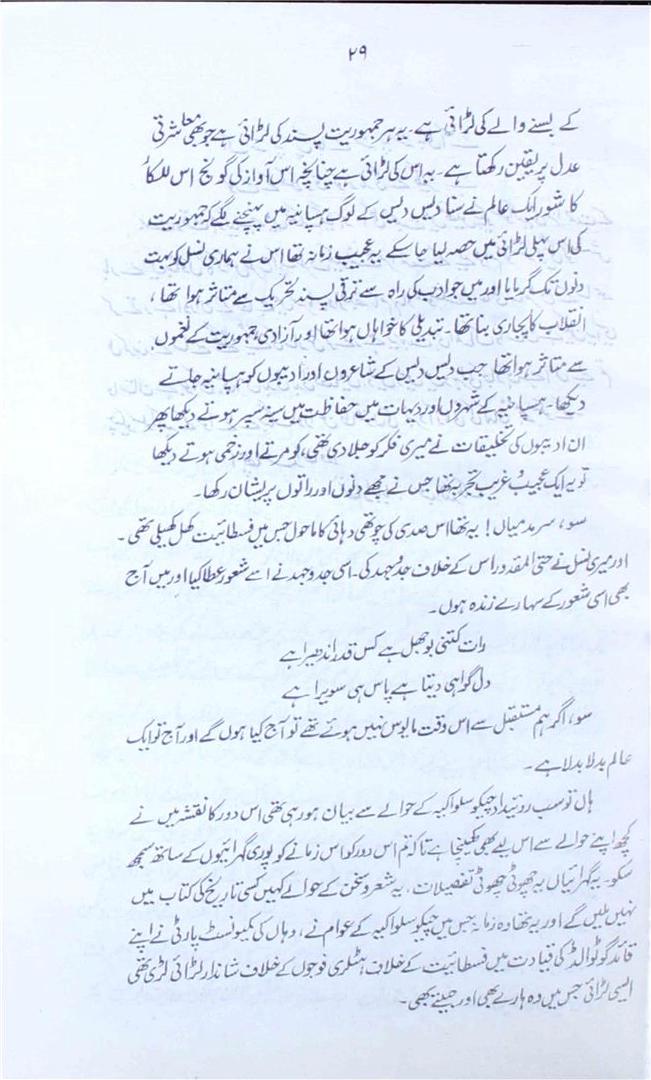 ۲۹
کے بسنے والے کی لڑائی ہے۔ یہ ہر جمہوریت پسند کی لڑائی ہے جو بھی معاشرتی
عدل پر یقین رکھتا ہے۔ یہ اس کی لڑائی ہے چنانچہ اس آواز کی گونج اس للکار
کا شور ایک عالم نے سنا دیس دیس کے لوگ ہسپانیہ میں پہنچنے لگے کہ جمہوریت
کی اس پہلی لڑائی میں حصہ لیا جا سکے یہ عجیب زمانہ تھا اس نے ہماری نسل کو بہت
دنوں تک گرمایا اور میں جو ادب کی راہ سے ترقی پسند تحریک سے متاثر ہوا تھا،
انقلاب کا پجاری بنا تھا۔ تبدیلی کا خواہاں ہوا تھا اور آزادی جمہوریت کے نغموں
سے متاثر ہوا تھا جب دیس دیس کے شاعروں اور ادیبوں کو ہسپانیہ جاتے
دیکھا۔ ہسپانیہ کے شہروں اور دیہات میں حفاظت میں سینہ سپر ہوتے دیکھا پھر
ان ادیبوں کی تخلیقات نے میری فکر کو جلا دی تھی، کو مرتے اور زخمی ہوتے دیکھا
تو یہ ایک عجیب و غریب تجربہ تھا جس نے مجھے دنوں اور راتوں پریشان رکھا۔
سو، سرمد میاں! یہ تھا اس صدی کی چوتھی دہائی کا ماحول جس میں فسطائیت کھل کھیلی تھی۔
اور میری نسل نے حتی المقدور اس کے خلاف جدوجہد کی۔ اسی جدوجہد نے اسے شعور عطا کیا اور میں آج
بھی اسی شعور کے سہارے زندہ ہوں۔
رات کتنی بوجھل ہے کس قدر اندھیرا ہے
دل گواہی دیتا ہے پاس ہی سویرا ہے
سو، اگر ہم مستقبل سے اس وقت مایوس نہیں ہوئے تھے تو آج کیا ہوں گے اور آج تو ایک
عالم بدلا بدلا ہے۔
ہاں تو سب روئیداد چیکوسلواکیہ کے حوالے سے بیان ہو رہی تھی اس دور کا نقشہ میں نے
کچھ اپنے حوالے سے اس لیے بھی کھینچا ہے تاکہ تم اس دور کو اس زمانے کو پوری گہرائیوں کے ساتھ سمجھ
سکو۔ یہ گہرائیاں یہ چھوٹی چھوٹی تفصیلات، یہ شعر و سخن کے حوالے کہیں کسی تاریخ کی کتاب میں
نہیں ملیں گے اور یہ تھا وہ زمانہ جس میں چیکوسلواکیہ کے عوام نے، وہاں کی کمیونسٹ پارٹی نے اپنے
قائد گوٹوالڈ کی قیادت میں فسطائیت کے خلاف ہٹلری فوجوں کے خلاف شاندار لڑائی لڑی تھی
ایسی لڑائی جس میں وہ ہارے بھی اور جیتے بھی۔